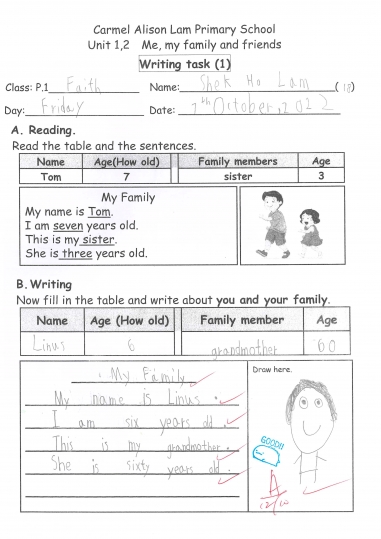 Carmel Alison Lam Primary School
Unit 1,2 Me, my family and friends
Writing task (1)
Class: P.1 Faith Name: Shek Ho Lam (18)
Day: Friday Date: 7th October, 2022
A. Reading.
Read the table and the sentences.
Name Age(How old) Family members Age
Tom 7 sister 3
My Family
My name is Tom.
I am seven years old.
This is my sister.
She is three years old.
B. Writing
Now fill in the table and write about you and your family.
Name Age (How old) Family member Age
Linus 6 grandmother 60
My Family
My name is Linus.
I am six years old.
This is my grandmother.
She is sixty years old.
Draw here.
GOOD!!
A